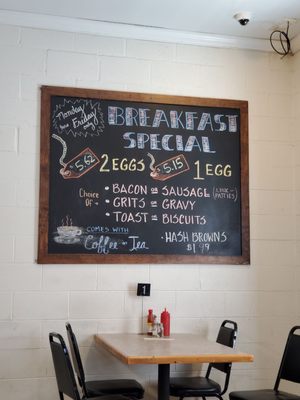 Monday
thru
Friday
only
BREAKFAST
SPECIAL
$5.62 2 EGGS $5.15 1 EGG
Choice
Of →
• BACON OR SAUSAGE (LINK OR PATTIES)
• GRITS OR GRAVY
• TOAST OR BISCUITS
COMES WITH
Coffee or Tea
• HASH BROWNS
$1.79
1